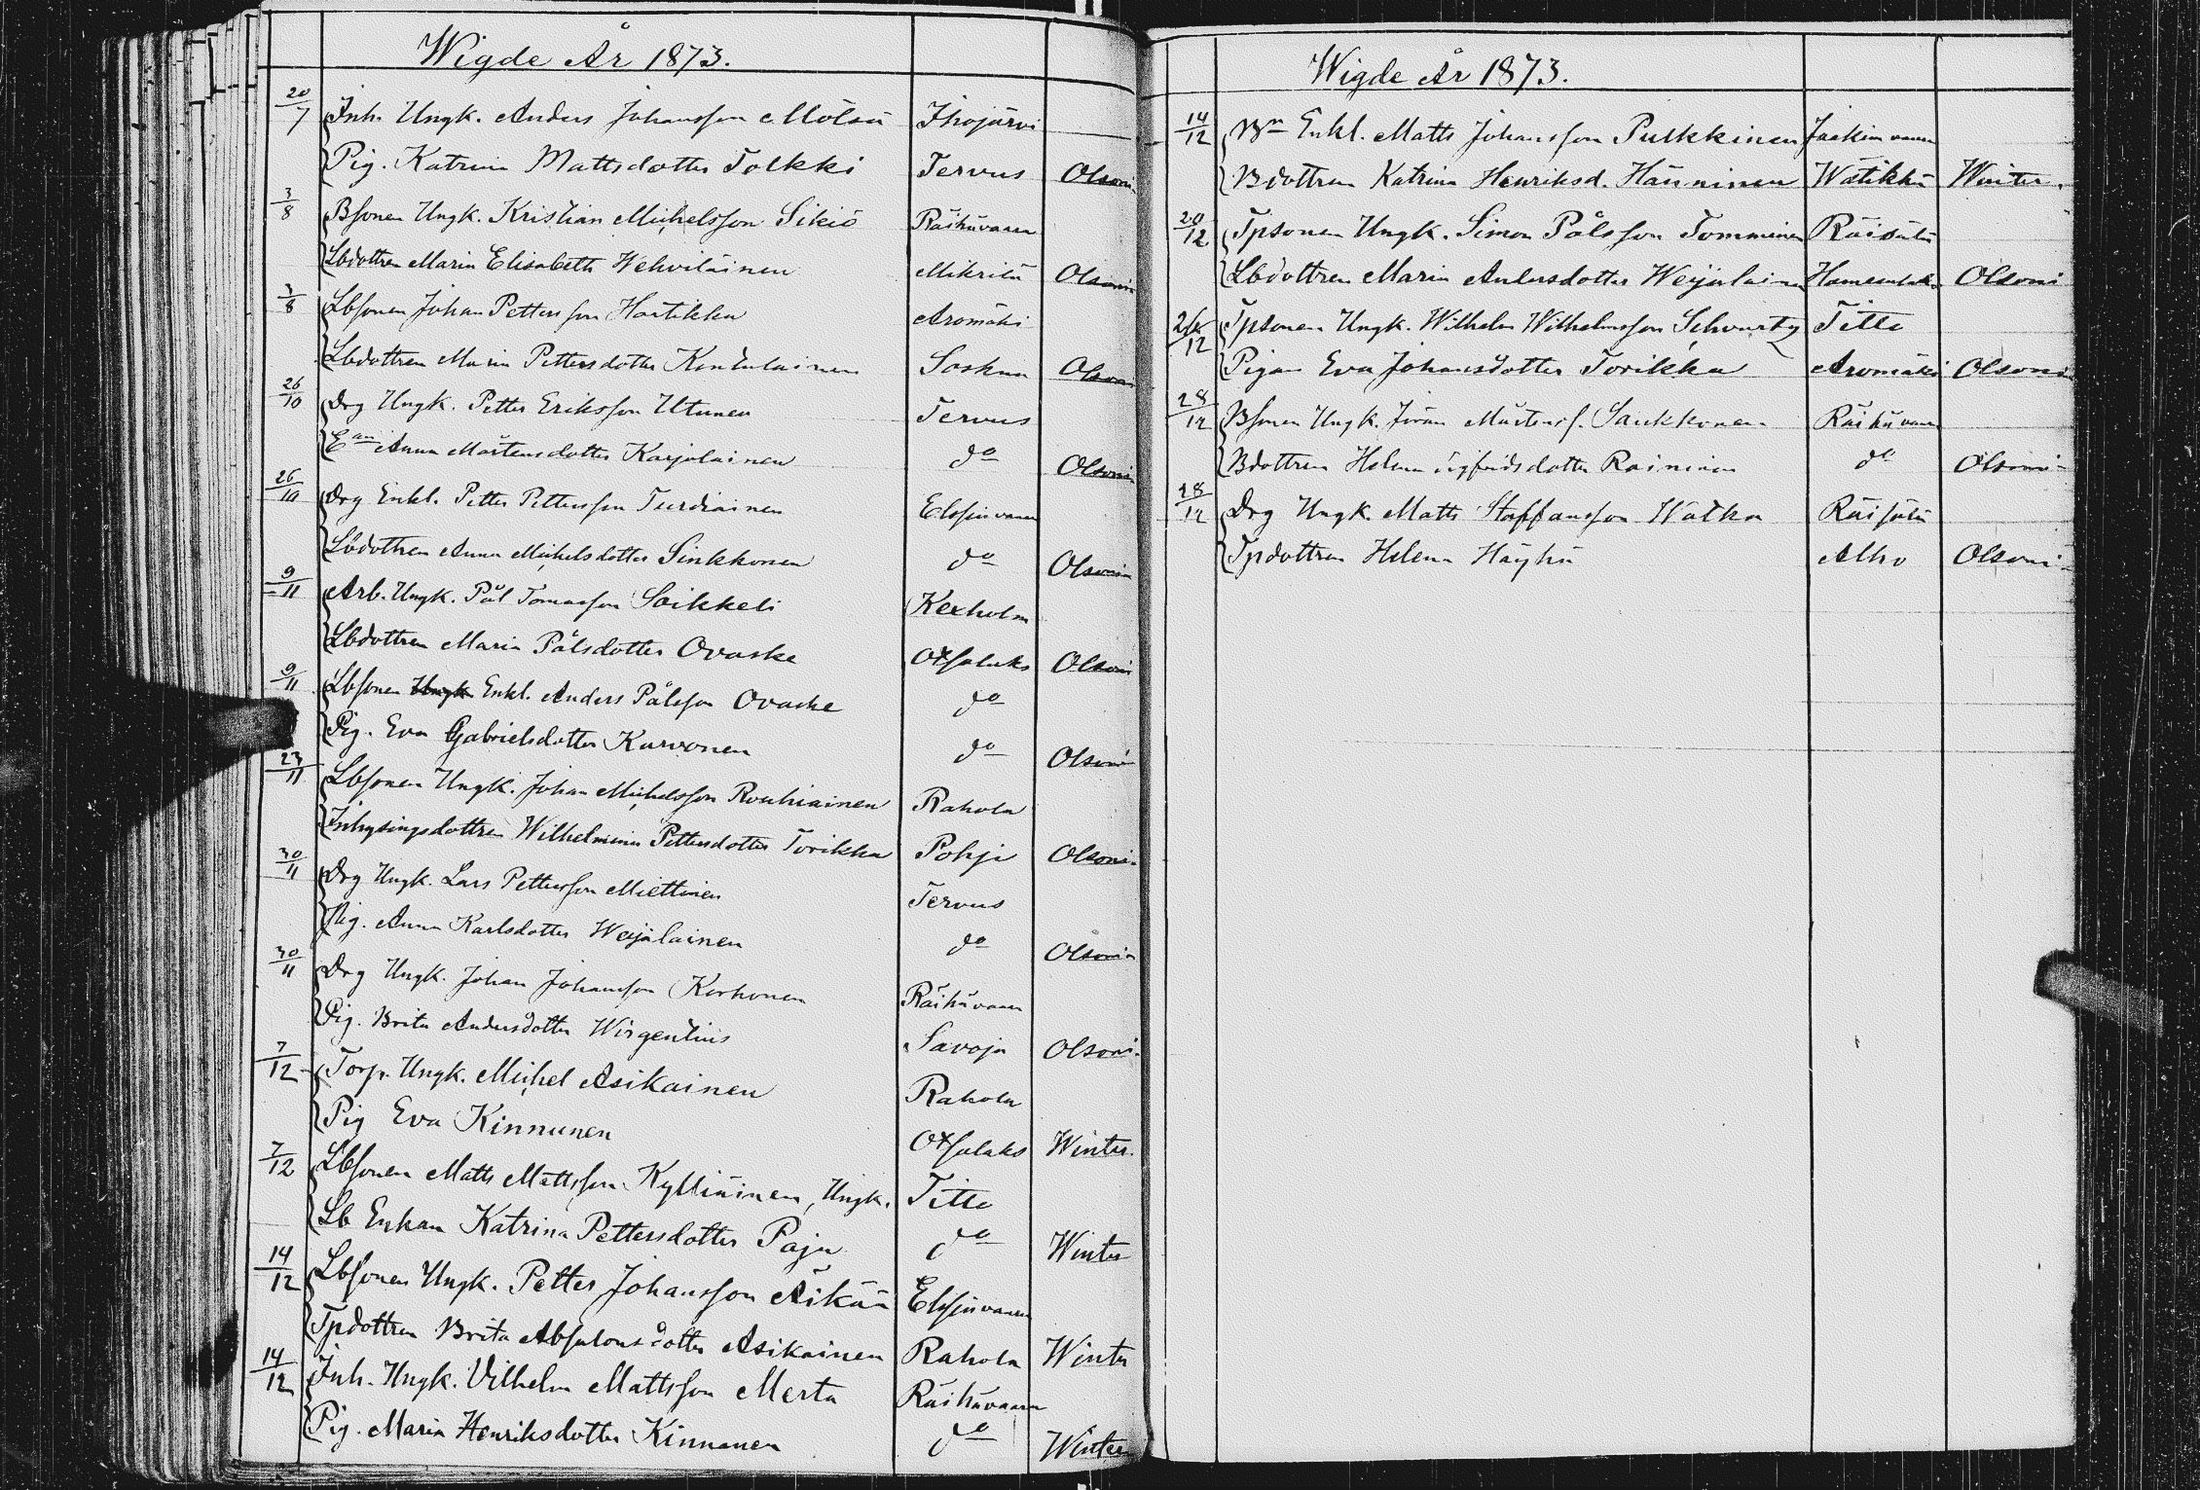 Wigde År 1873.
20/7 Inh. Ungk. Anders Johansson Mölsä Ihojärvi
Pig. Katrina Mattsdotter Tolkki Tervus Olsoni
3/8 Bsonen Ungk. Kristian Michelsson Sikiö Räihävaara
Lbdottren Maria Elisabeth Wehviläinen Mikrilä Olsoni
3/8 Lbsonen Johan Pettersson Hartikka Aromäki
Lbdottren Maria Pettersdotter Kontulainen Soskua Olsoni
26/10 Drg Ungk. Petter Eriksson Utunen Tervus
Ean Anna Mårtensdotter Karjalainen do Olsoni
26/10 Drg Enkl. Petter Pettersson Turdiainen Elssinvaara
Lbdottren Anna Michelsdotter Sinkkonen do Olsoni
9/11 Arb. Ungk. Pål Tomasson Soikkeli Kexholm
Lbdottren Maria Pålsdotter Ovaska Oxsalaks Olsoni
9/11 Lbsonen Ungk Enkl. Anders Pålsson Ovaska do
Pig. Eva Gabrielsdotter Karvonen do Olsoni
23/11 Lbsonen Ungk. Johan Michelsson Rouhiainen Rahola
Inhysingsdottren Wilhelmina Pettersdotter Torikka Pohja Olsoni
30/11 Drg Ungk. Lars Pettersson Miettinen Tervus
Pig. Anna Karlsdotter Weijalainen do Olsoni
30/11 Drg Ungk. Johan Johansson Korhonen Räihävaara
Pig. Brita Andersdotter Wirgentius Savoja Olsoni
7/12 Torp. Ungk. Michel Asikainen Rahola
Pig Eva Kinnunen Oxsalaks Winter.
7/12 Lbsonen Matts Mattsson Kylliäinen, Ungk. Titta
Lb Enkan Katrina Pettersdotter Paju do Winter
14/12 Lbsonen Ungk. Petter Johansson Äikää Elssinvaara
Tpdottren Brita Absalonsdotter Asikainen Rahola Winter
14/12 Inh. Ungk. Vilhelm Mattsson Merta Räihävaara
Pig. Maria Henriksdotter Kinnanen do Winter
Wigde År 1873.
14/12 Bn Enkl. Matts Johansson Pulkkinen Jaakimvaara
Bdottren Katrina Henriksd. Hänninen Wätikkä Winter.
20/12 Tpsonen Ungk. Simon Pålsson Tomminen Räisälä
Lbdottren Maria Andersdotter Weijalainen Olsoni
26/12 Tpsonen Ungk. Wilhelm Wilhelmsson Schvartz Titta
Pigan Eva Johansdotter Torikka Aromäki Olsoni
28/12 Bsonen Ungk. Jöran Mårtenss. Saukkonen Räihävaara
Bdottren Helena Sigfridsdotter Raininen do Olsoni
28/12 Drg Ungk. Matts Staffansson Watka Räisälä
Tpdottren Helena Häyhä Alho Olsoni